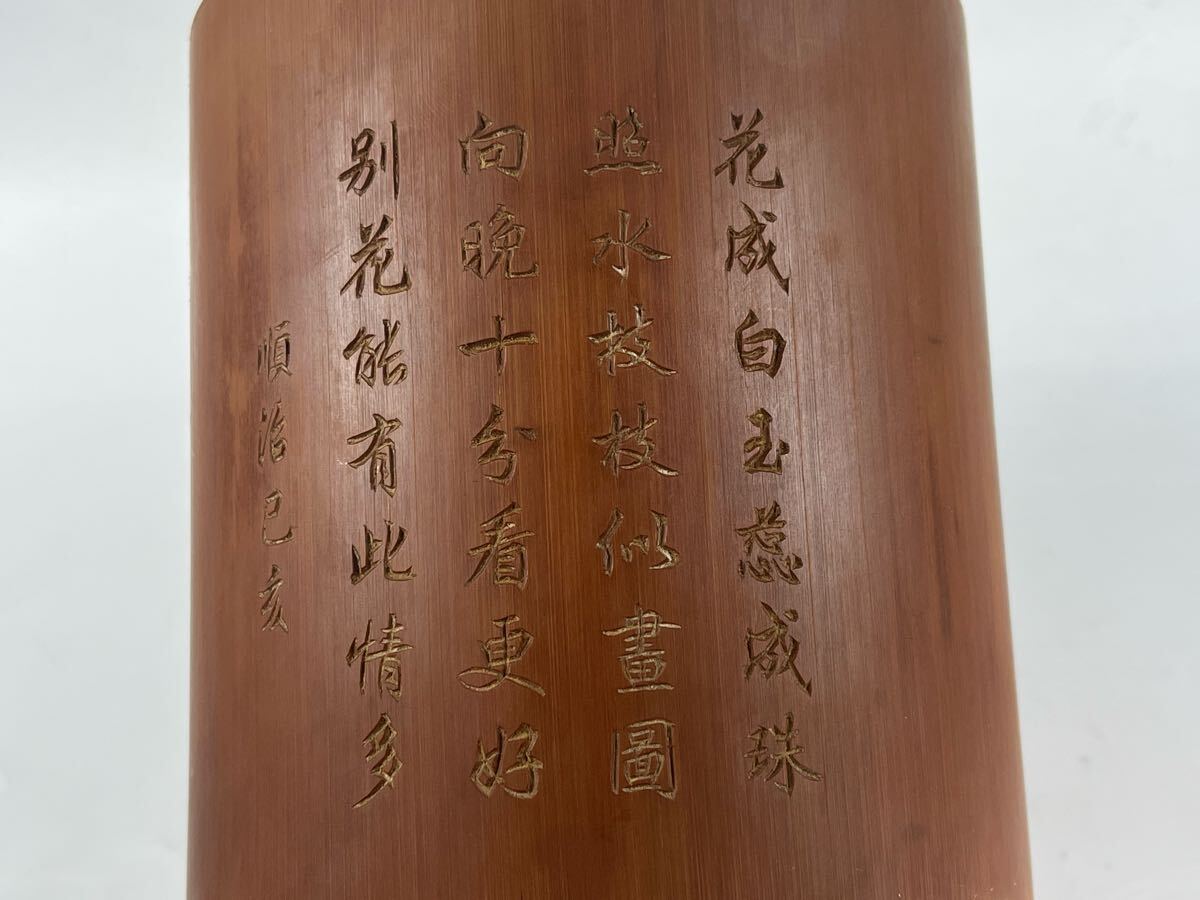 花成白玉蕊成珠
照水枝枝似畫圖
向晚十分看更好
别花能有此情多
順治己亥